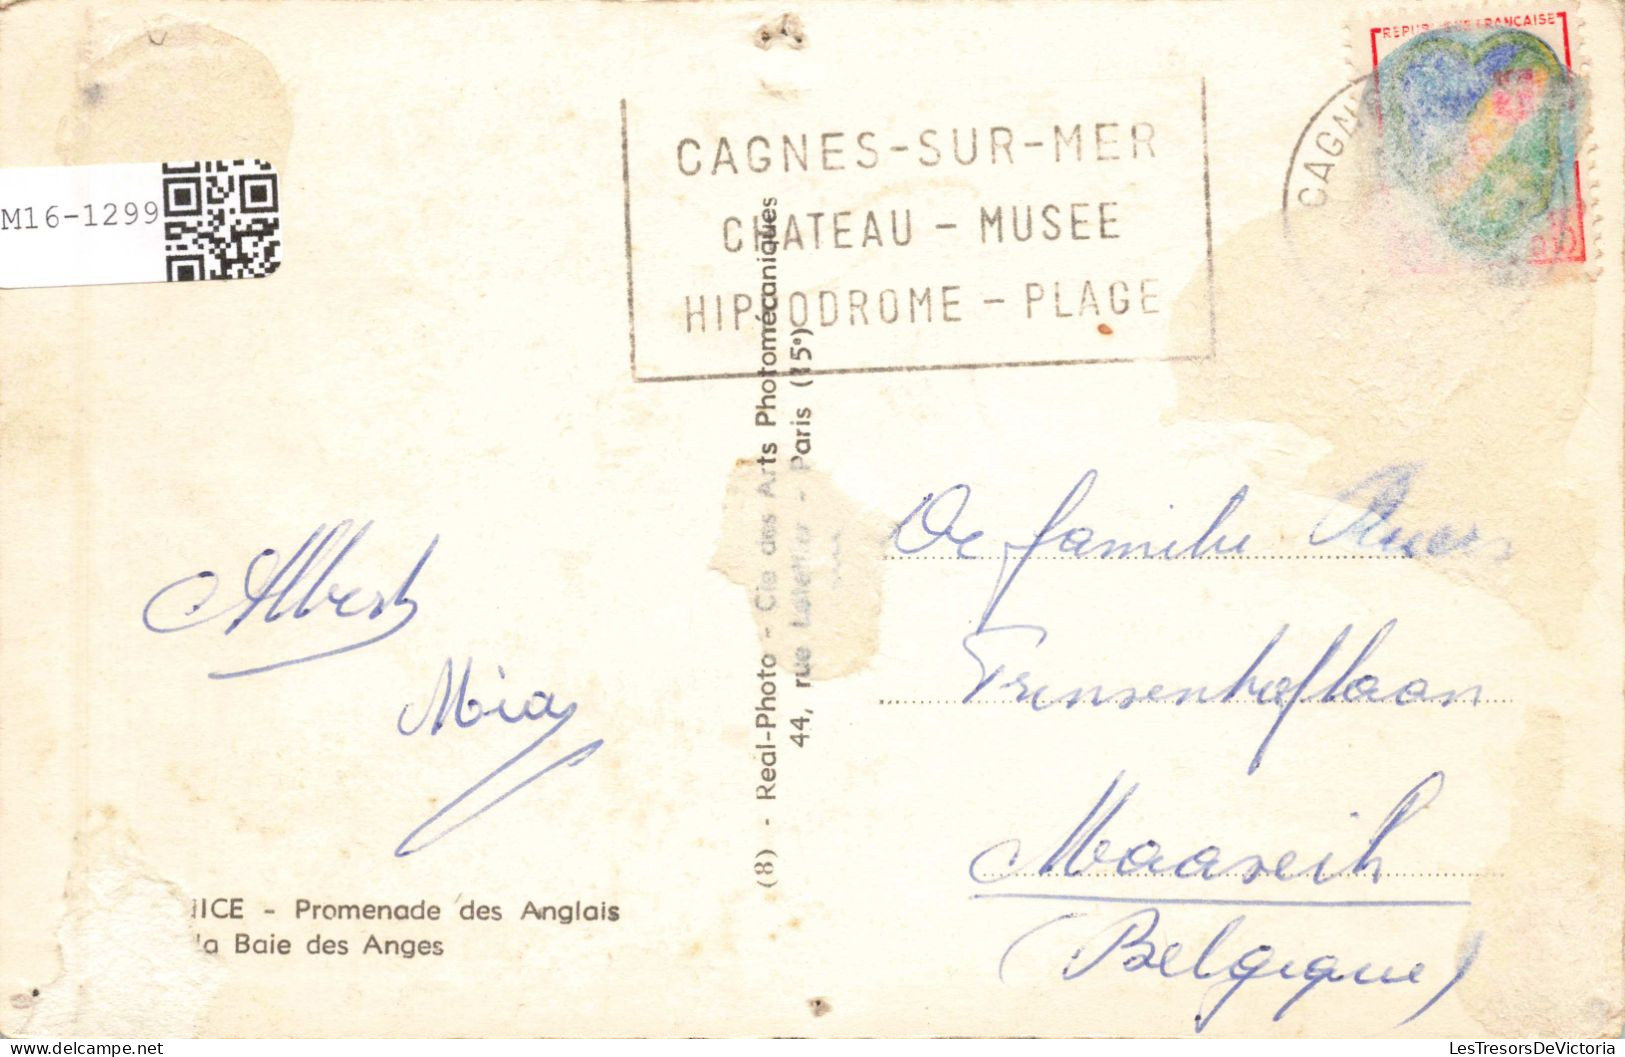 REPUBLIQUE FRANÇAISE
CAGNES-SUR-MER
CHATEAU - MUSEE
HIPPODROME - PLAGE
CAGN
M16-1299
(8) - Real-Photo - Cie des Arts Photomécaniques
44, rue Letellier - Paris (15e)
Albert
Mia
De familie
Prinsenhoflaan
Maaseik
(Belgique)
NICE - Promenade des Anglais
la Baie des Anges
LesTresorsDeVictoria